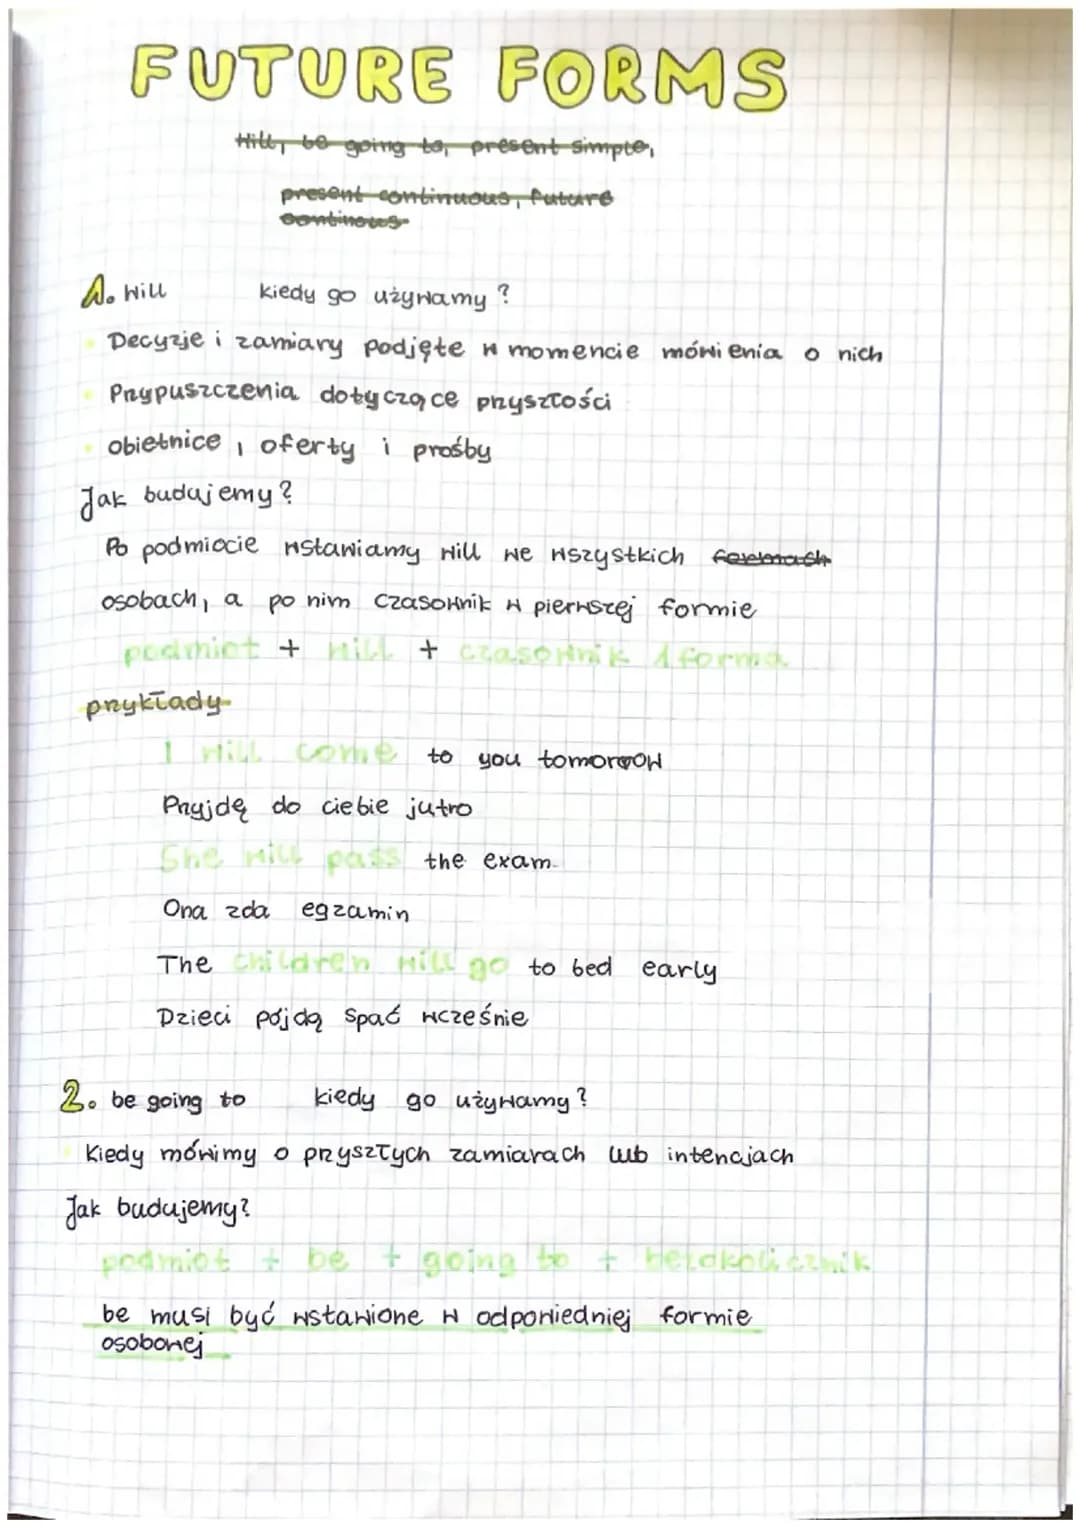 FUTURE FORMS
Will, be going to, present simple,
present continuous, future
continous
1. Will kiedy go używamy?
Decyzje i zamiary podjęte w momencie mówienia o nich
Przypuszczenia dotyczące przyszłości
obietnice, oferty i prośby
Jak budujemy?
Po podmiocie wstawiamy will we wszystkich formach
osobach, a po nim czasownik w pierwszej formie
podmiot + will + czasownik 1 forma
przykłady
I will come to you tomorrow
Przyjdę do ciebie jutro
She will pass the exam
Ona zda egzamin
The children will go to bed early
Dzieci pójdą spać wcześnie
2. be going to kiedy go używamy?
Kiedy mówimy o przyszłych zamiarach lub intencjach
Jak budujemy?
podmiot + be + going to + bezokolicznik
be musi być wstawione w odpowiedniej formie
osobowej